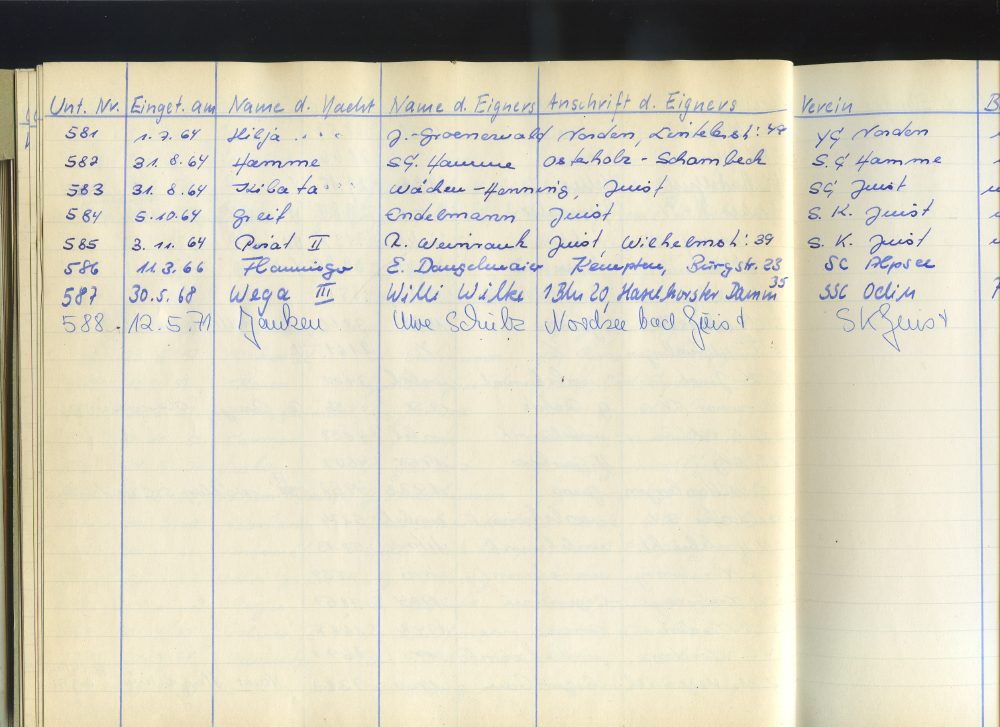 Unt. Nr. Einget. am Name d. Yacht Name d. Eigners Anschrift d. Eigners Verein B
581 1.7.64 Hilja J. Groenewald Norden, 49 YC Norden
582 31.8.64 Hamme SG. Hamme Osterholz-Scharmbeck S.G Hamme
583 31.8.64 Kibata Wäcken-Henning, Juist SG Juist
584 5.10.64 Greif Endelmann Juist S. K. Juist
585 3.11.64 Pirat II R. Juist, Wilhelmst: 39 S. K. Juist
586 11.3.66 Flamingo E. Dangelmaier Kempten, Burgstr. 23 SC Alpsee
587 30.5.68 Wega III Willi Wilke 1 Bln 20, Haselhorster Damm 35 SSC Odin
588. 12.5.71 Janken Uwe Nordsee bad Juist SK Juist